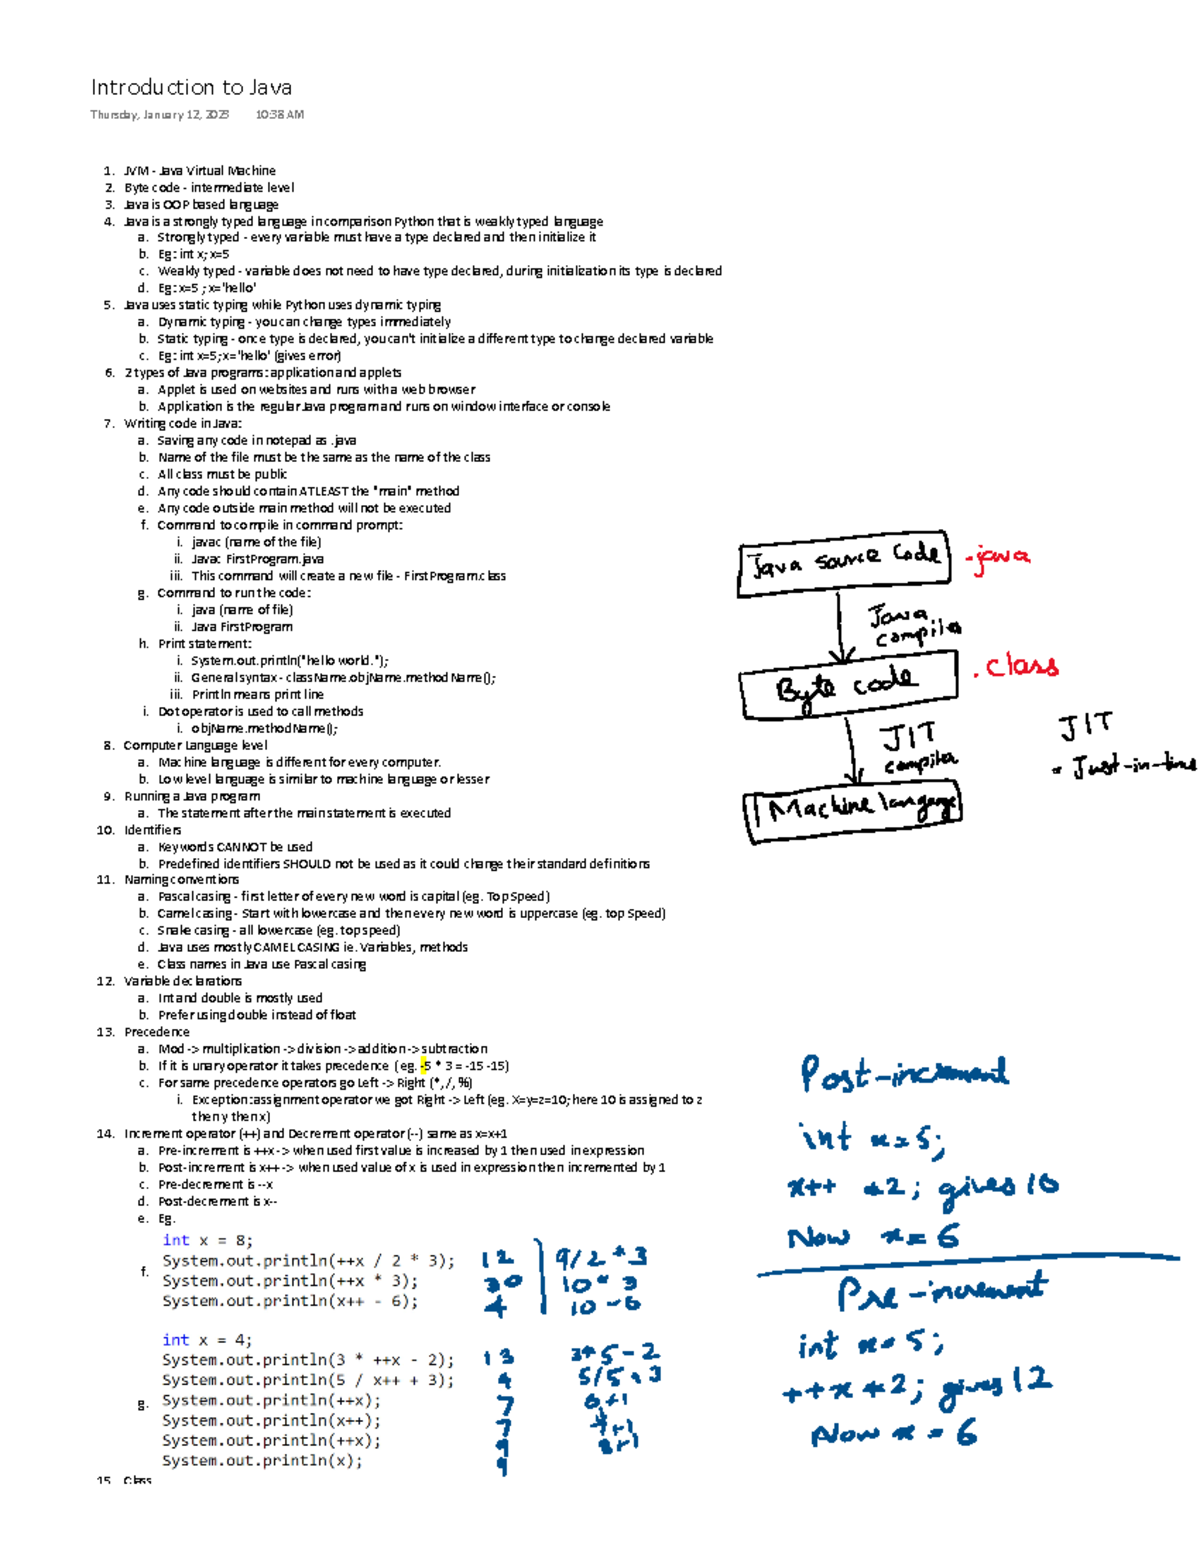 Introduction to Java
Thursday, January 12, 2023 10:38 AM
1. JVM - Java Virtual Machine
2. Byte code - intermediate level
3. Java is OOP based language
4. Java is a strongly typed language in comparison Python that is weakly typed language
a. Strongly typed - every variable must have a type declared and then initialize it
b. Eg: int x; x=5
c. Weakly typed - variable does not need to have type declared, during initialization its type is declared
d. Eg: x=5 ; x='hello'
5. Java uses static typing while Python uses dynamic typing
a. Dynamic typing - you can change types immediately
b. Static typing - once type is declared, you can't initialize a different type to change declared variable
c. Eg: int x=5; x='hello' (gives error)
6. 2 types of Java programs: application and applets
a. Applet is used on websites and runs with a web browser
b. Application is the regular Java program and runs on window interface or console
7. Writing code in Java:
a. Saving any code in notepad as .java
b. Name of the file must be the same as the name of the class
c. All class must be public
d. Any code should contain ATLEAST the "main" method
e. Any code outside main method will not be executed
f. Command to compile in command prompt:
i. javac (name of the file)
ii. Javac FirstProgram.java
iii. This command will create a new file - FirstProgram.class
g. Command to run the code:
i. java (name of file)
ii. Java FirstProgram
h. Print statement:
i. System.out.println("hello world.");
ii. General syntax - className.objName.methodName();
iii. Println means print line
i. Dot operator is used to call methods
i. objName.methodName();
8. Computer Language level
a. Machine language is different for every computer.
b. Low level language is similar to machine language or lesser
9. Running a Java program
a. The statement after the main statement is executed
10. Identifiers
a. Keywords CANNOT be used
b. Predefined identifiers SHOULD not be used as it could change their standard definitions
11. Naming conventions
a. Pascal casing - first letter of every new word is capital (eg. Top Speed)
b. Camel casing - Start with lowercase and then every new word is uppercase (eg. top Speed)
c. Snake casing - all lowercase (eg. top speed)
d. Java uses mostly CAMEL CASING ie. Variables, methods
e. Class names in Java use Pascal casing
12. Variable declarations
a. Int and double is mostly used
b. Prefer using double instead of float
13. Precedence
a. Mod -> multiplication -> division -> addition -> subtraction
b. If it is unary operator it takes precedence (eg. -5 * 3 = -15 -15)
c. For same precedence operators go Left -> Right (*, /, %)
i. Exception: assignment operator we got Right -> Left (eg. X=y=z=10; here 10 is assigned to z
then y then x)
14. Increment operator (++) and Decrement operator (--) same as x=x+1
a. Pre-increment is ++x -> when used first value is increased by 1 then used in expression
b. Post-increment is x++ -> when used value of x is used in expression then incremented by 1
c. Pre-decrement is --x
d. Post-decrement is x--
e. Eg.
f.
int x = 8;
System.out.println(++x / 2 * 3); 12 9/2 * 3
System.out.println(++x * 3); 30 10 * 3
System.out.println(x++ - 6); 4 10 - 6
g.
int x = 4;
System.out.println(3 * ++x - 2); 13 3*5-2
System.out.println(5 / x++ + 3); 4 5/5+3
System.out.println(++x); 7 6+1
System.out.println(x++); 7 7+1
System.out.println(++x); 9 8+1
System.out.println(x); 9
15. Class
Java source code .java
Java
compiler
Byte code .class
JIT
compiler
Machine language
JIT
= Just-in-time
Post-increment
int x=5;
x++ *2; gives 10
Now x=6
Pre-increment
int x=5;
++x*2; gives 12
Now x=6